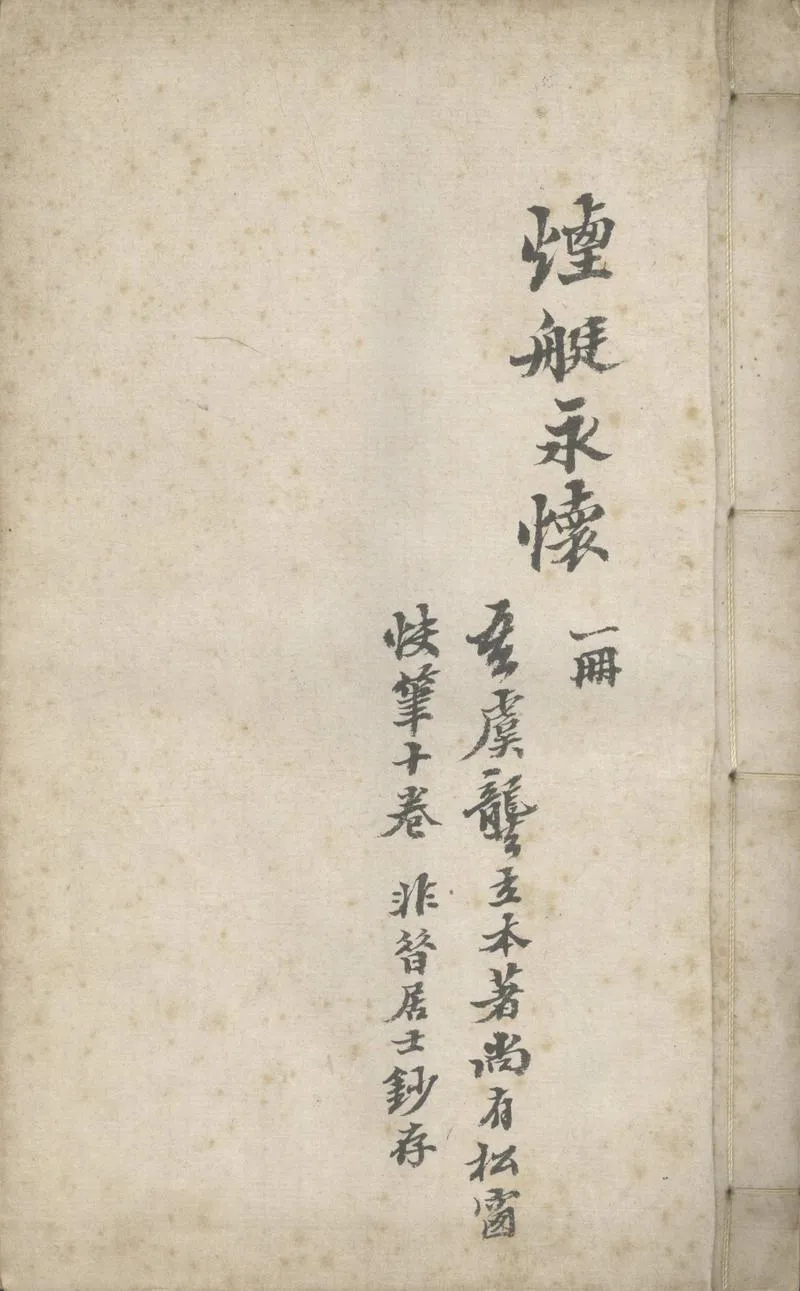 煙艇永懷
一冊
吾虞龔立本著尚有松窗
快筆十卷 非昔居士鈔存